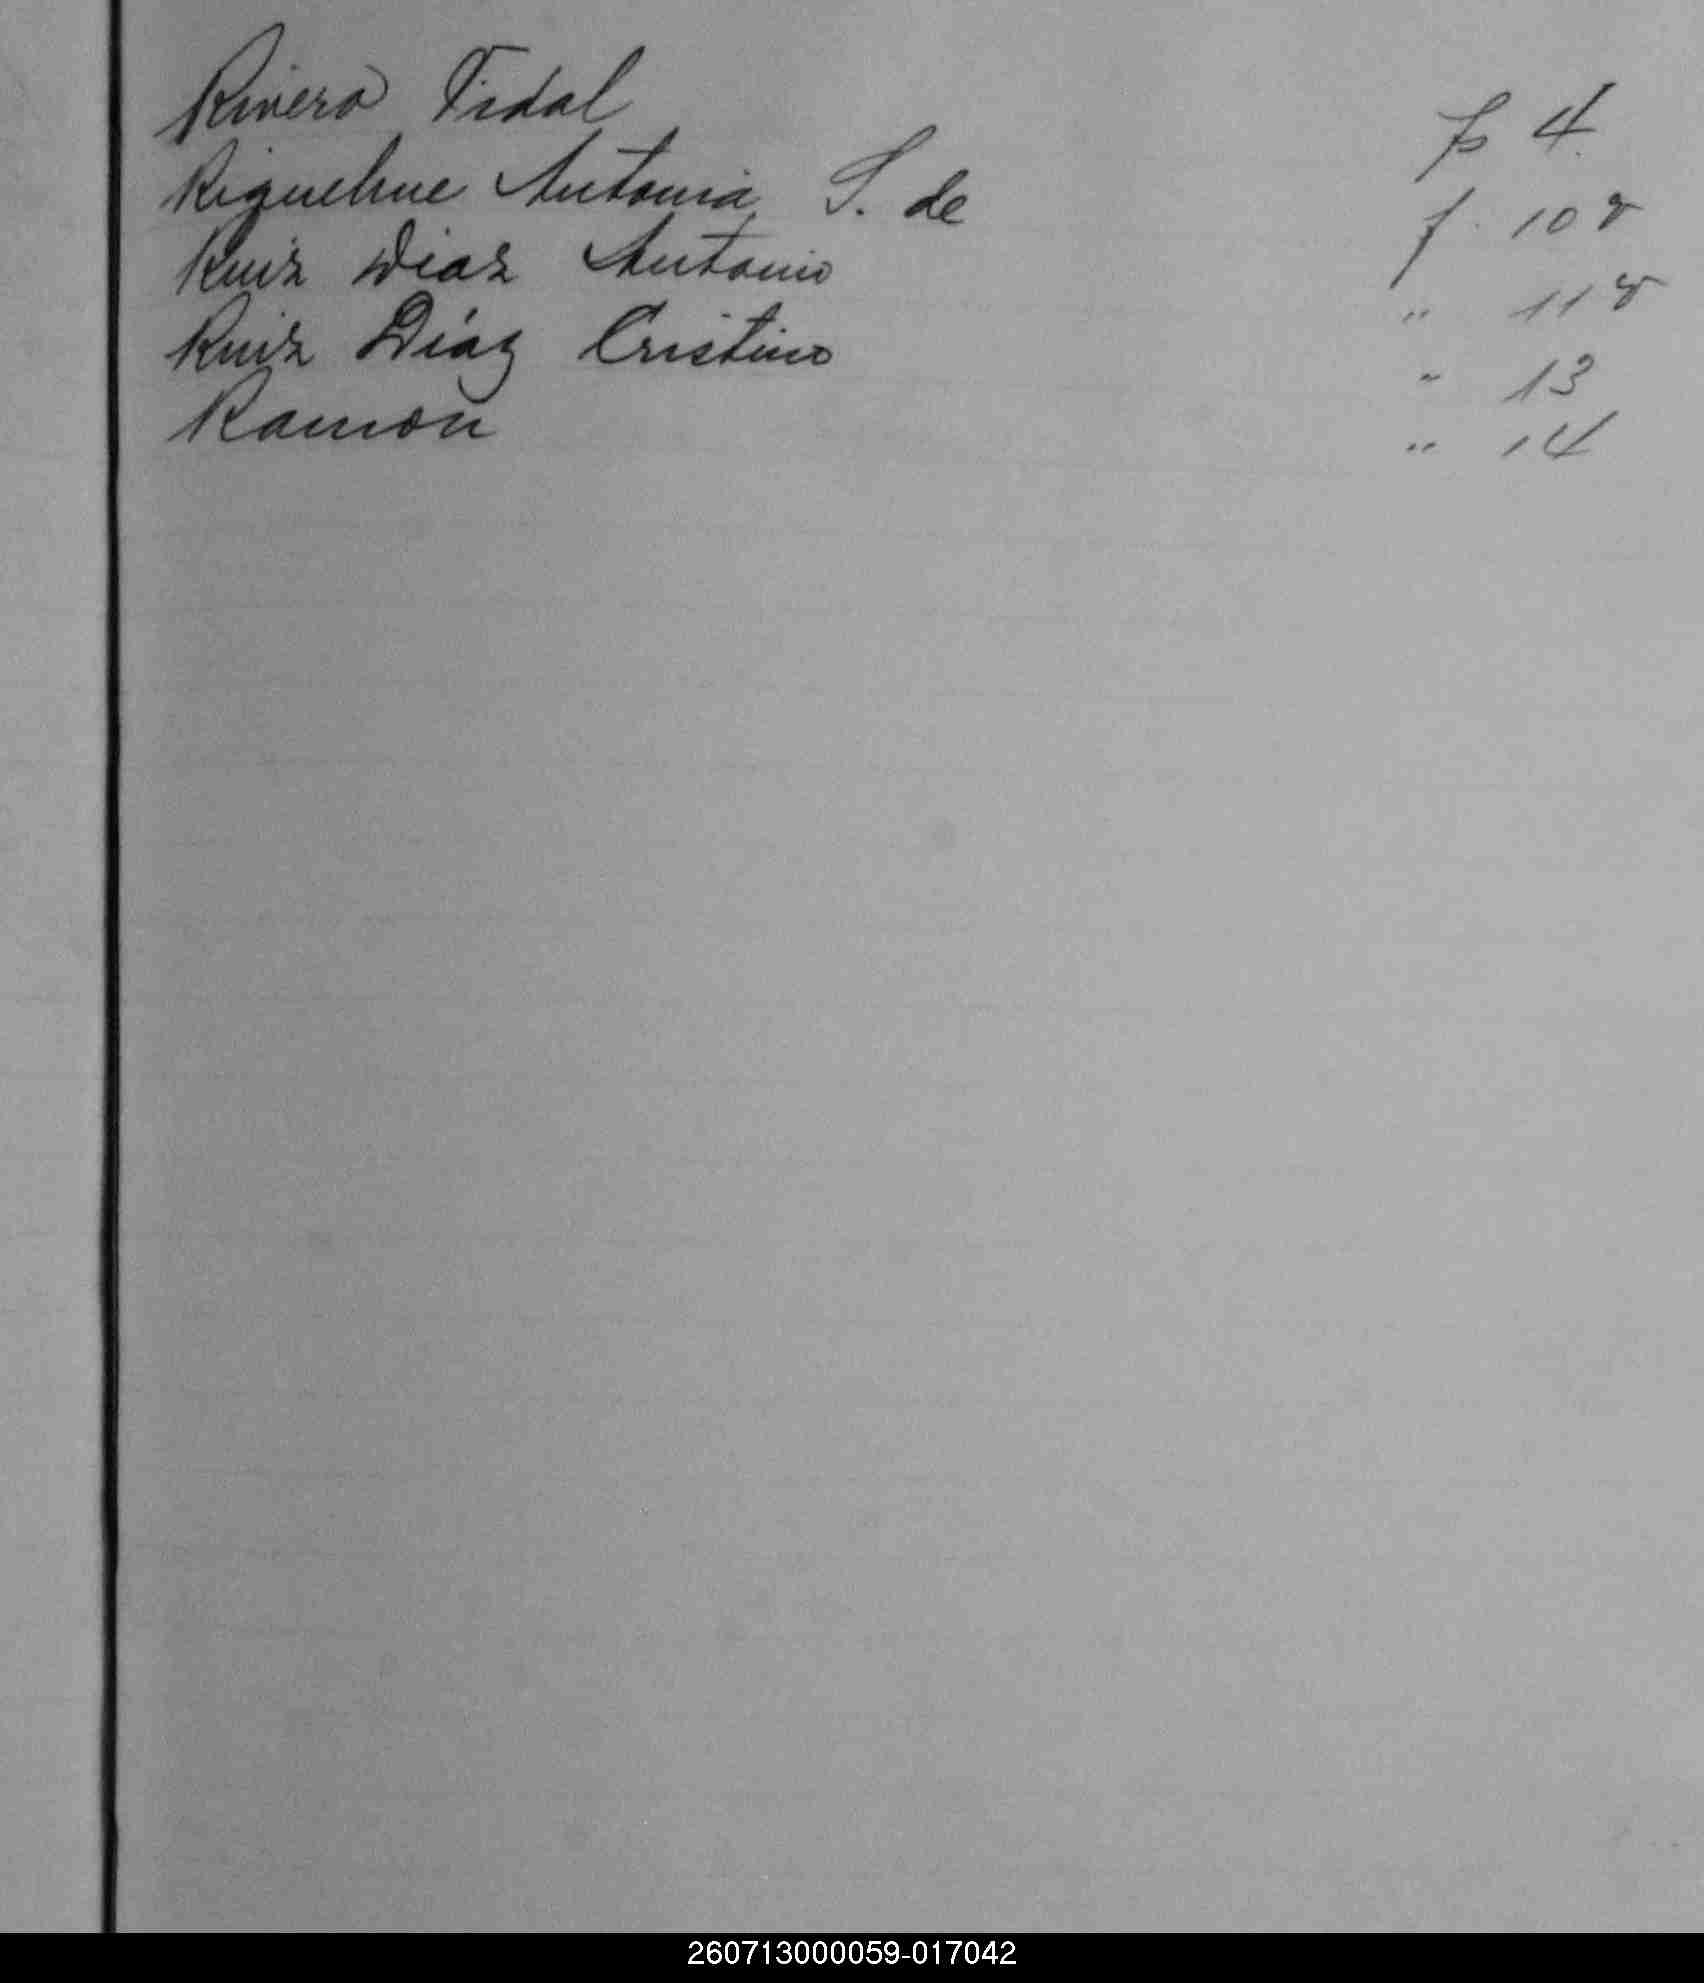 Rivera Vidal f 4.
Riquelme Antonia S. de f. 10 v
Ruiz Diaz Antonio " 11 v
Ruiz Díaz Cristino " 13
Ramón " 14
260713000059-017042